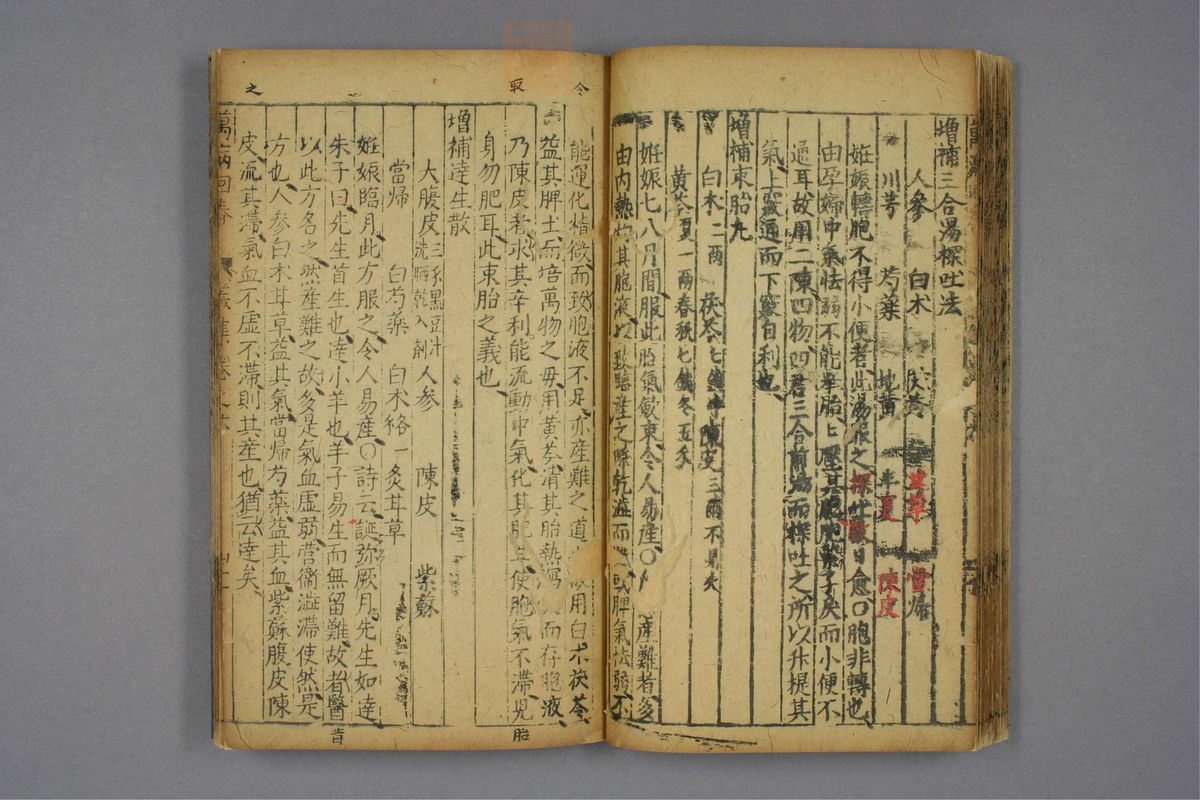 增補三合湯探吐法
人參 白朮 茯苓 甘草 當歸
川芎 芍藥 地黃 半夏 陳皮
姙娠轉胞不得小便者此湯服之探吐數日愈〇胞非轉也
由孕婦中氣怯弱不能舉胎ヒ壓其胞胞繫了戾而小便不
通耳故用二陳四物四君三合煎湯而探吐之所以升提其
氣上竅通而下竅自利也
增補束胎丸
白朮二兩 茯苓七錢半 陳皮三兩不見火
黃芩夏一兩春秋七錢冬五錢
姙娠七八月間服此胎氣斂束令人易産〇 産難者多
由內熱灼其胞液以致臨産之際乾澁而 或脾氣怯弱不
能運化精微而致胞液不足亦産難之道 用白朮茯苓
益其脾土而培萬物之母用黃芩清其胎熱瀉 而存胞液
乃陳皮者求其辛利能流動中氣化其肥 使胞氣不滯兒
身勿肥耳此束胎之義也
增補達生散
大腹皮三錢黑豆汁洗晒乾入劑 人參 陳皮 紫蘇
當歸 白芍藥 白朮各一 炙甘草
姙娠臨月此方服之令人易産〇詩云誕弥厥月先生如達
朱子曰先生首生也達小羊也羊子易生而無留難故昔醫
以此方名之然産難之故多是氣血虛弱營衞澁滯使然是
方也人參白朮甘草益其氣當歸芍藥益其血紫蘇腹皮陳
皮流其滯氣血不虛不滯則其産也猶云達矣
萬病回春
令
取
之
胎
昔